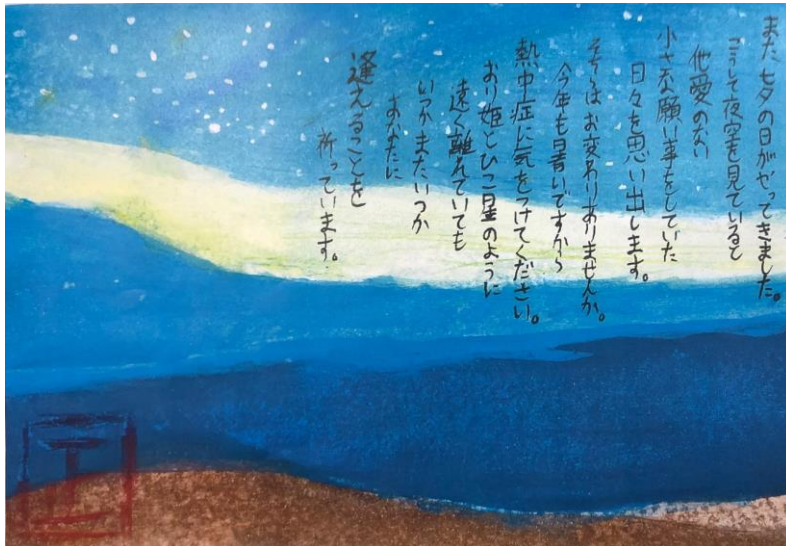 また七夕の日がやってきました。
こうして夜空を見ていると
他愛のない
小さな願い事をしていた
日々を思い出します。
そちらはお変わりありませんか。
今年も暑いですから
熱中症に気をつけてください。
おり姫とひこ星のように
遠く離れていても
いつかまたいつか
あなたに
逢えることを
祈っています。